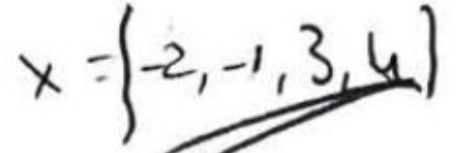 x = {-2, -1, 3, 4}